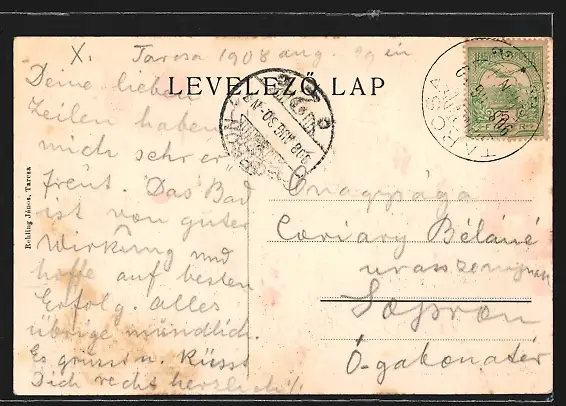 X. Tarcsa 1908 aug. 29 ein
LEVELEZŐ LAP
Deine lieben
Zeilen haben
mich sehr er
freut. Das Bad
ist von guter
Wirkung und
hoffe auf besten
Erfolg. alles
übrige mündlich.
Es grüssen u. Küsst
Dich recht herzlichst
Rehling János, Tarcsa
Őnagysága
Béláné
Sopron
TARCSA
908 AUG 30